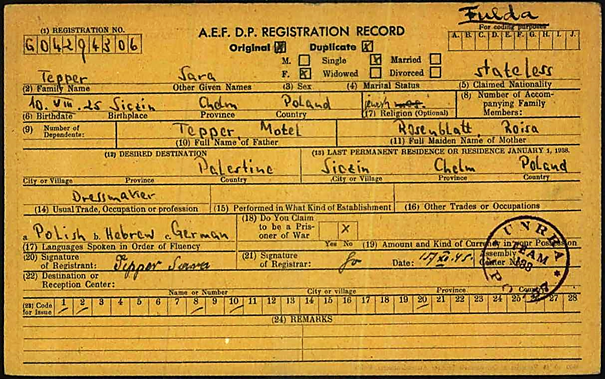 Fulda
(1) REGISTRATION NO.
A.E.F. D.P. REGISTRATION RECORD
For coding purposes
G04294306
Original X Duplicate X
A. B. C. D. E. F. G. H. I. J.
M. Single X Married
F. X Widowed Divorced
Tepper Sara stateless
(2) Family Name Other Given Names (3) Sex (4) Marital Status (5) Claimed Nationality
10. VIII. 25 Siczin Chelm Poland
(6) Birthdate Birthplace Province Country (17) Religion (Optional)
(8) Number of Accompanying Family Members:
(9) Number of Dependents:
Tepper Motel Rosenblatt, Roisa
(10) Full Name of Father (11) Full Maiden Name of Mother
(12) DESIRED DESTINATION (13) LAST PERMANENT RESIDENCE OR RESIDENCE JANUARY 1, 1938.
Palestine Siczin Chelm Poland
City or Village Province Country City or Village Province Country
Dressmaker
(14) Usual Trade, Occupation or profession (15) Performed in What Kind of Establishment (16) Other Trades or Occupations
a. Polish b. Hebrew c. German
(18) Do You Claim to be a Prisoner of War X
Yes No
(17) Languages Spoken in Order of Fluency
(19) Amount and Kind of Currency in your Possession
(20) Signature of Registrant: Tepper Sara
(21) Signature of Registrar:
Date: 15/XI.45.
Assembly Center No.
UNRRA TEAM
(22) Destination or Reception Center:
Name or Number City or village Province Country
(23) Code for Issue 1 2 3 4 5 6 7 8 9 10 11 12 13 14 15 16 17 18 19 20 21 22 23 24 25 26 27 28
(24) REMARKS